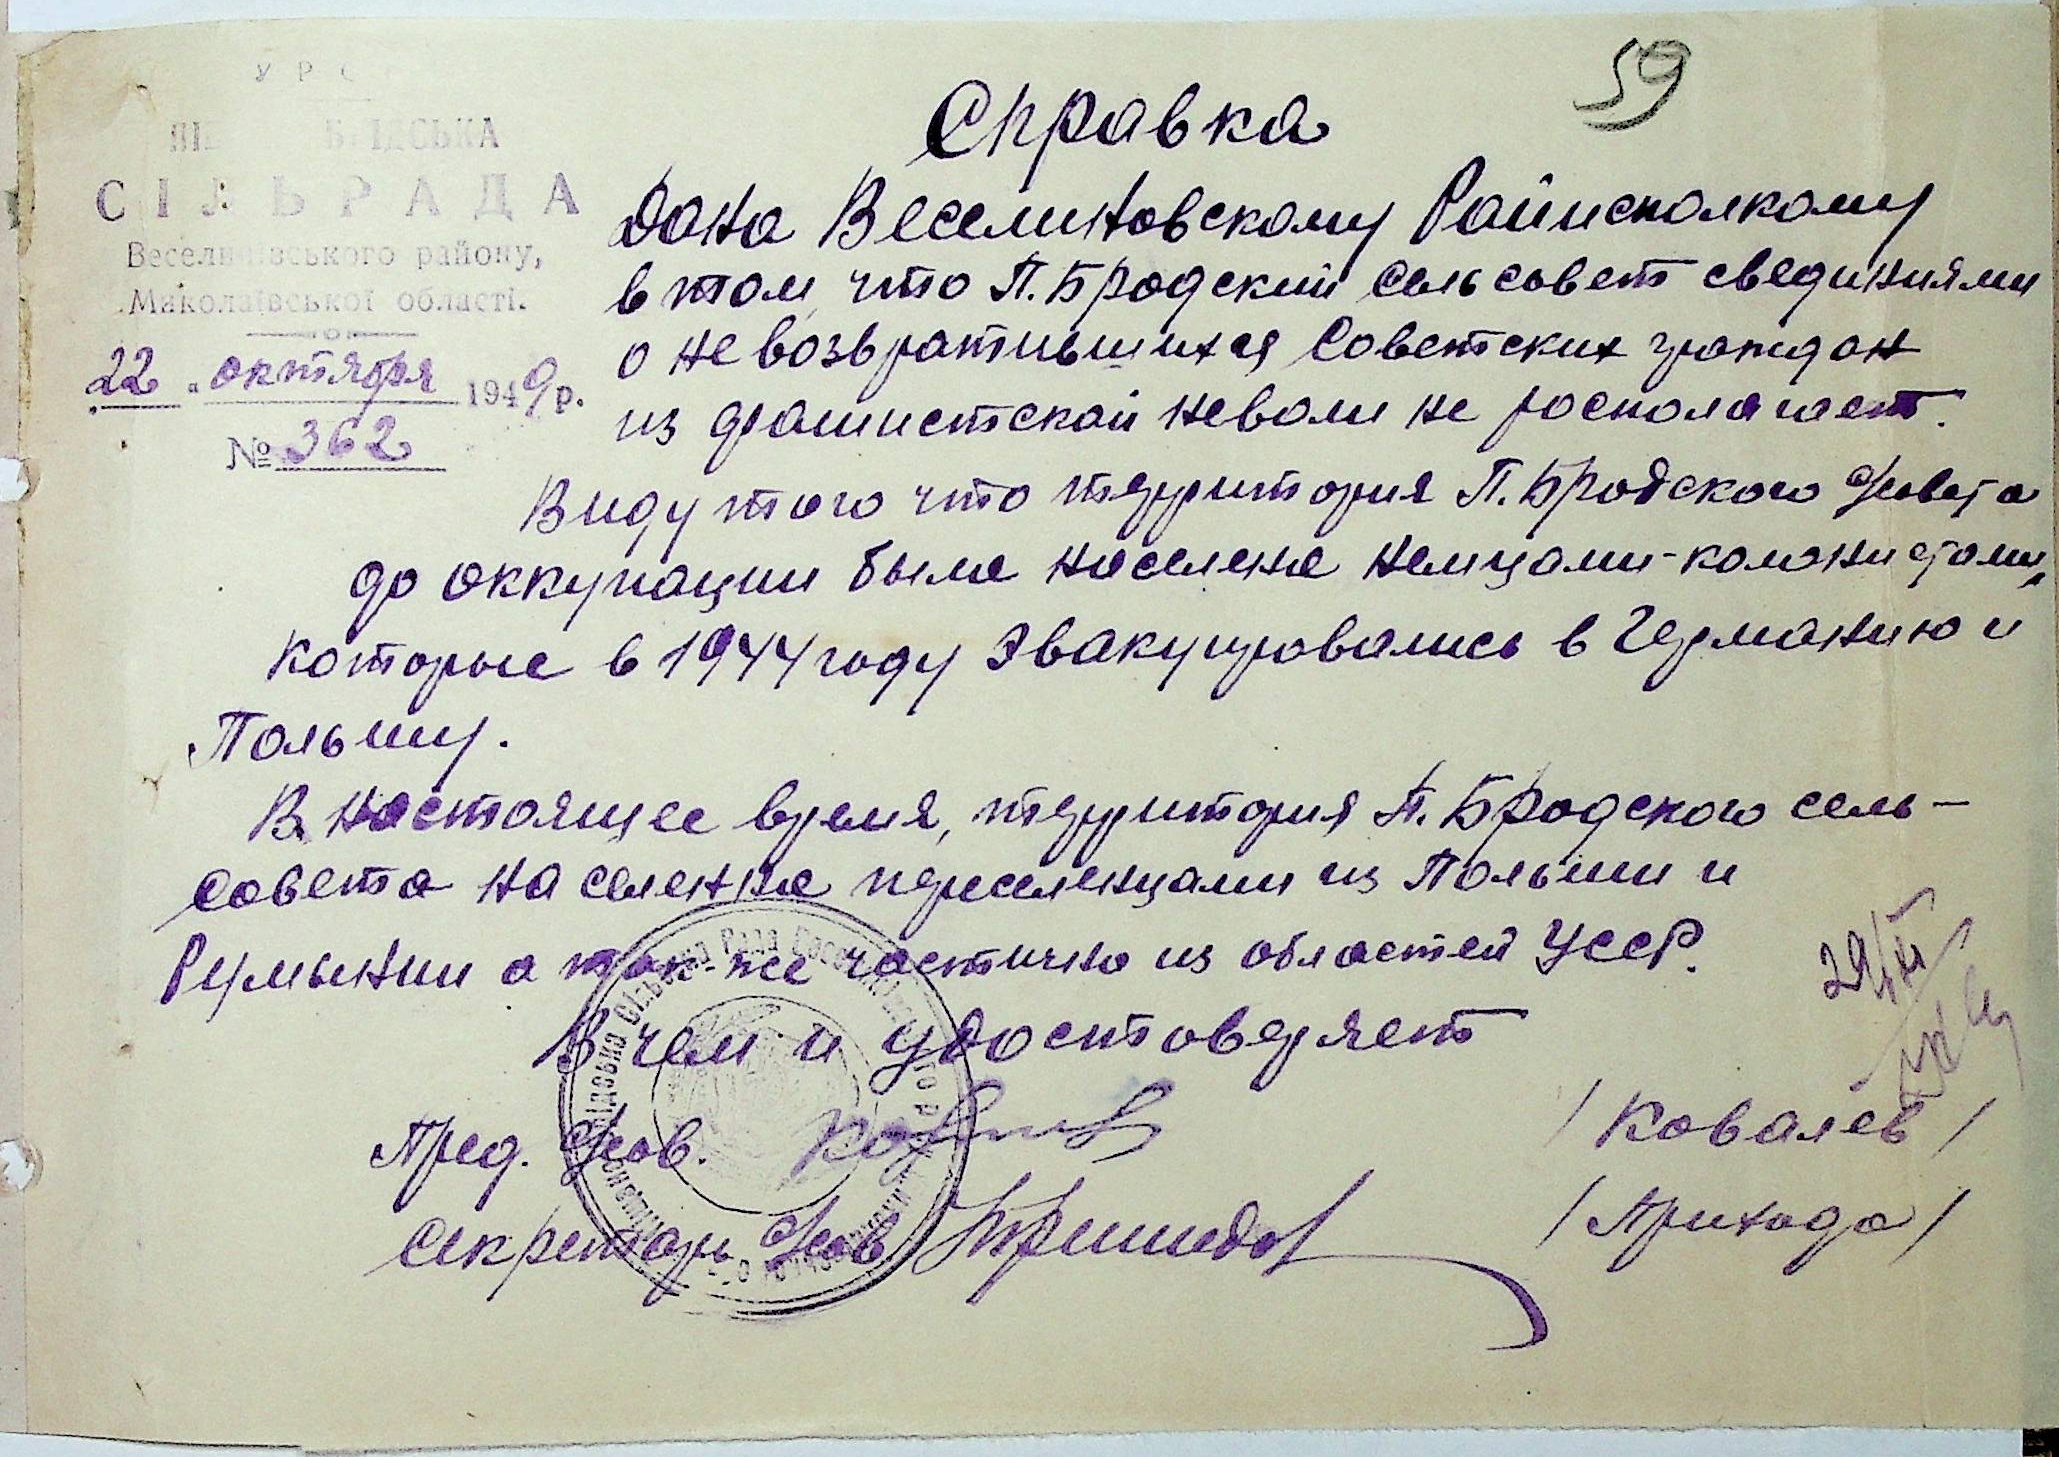 59
У Р С Р
СІЛЬРАДА
Веселинівського району,
Миколаївської області.
22 " октября 1949 р.
№ 362
Справка
Дана Веселиновскому Райисполкому
в том, что П. Бродский сельсовет свединиями
о не возвратившихся Советских граждан
из фашистской неволи не росполагает.
Виду того что территория П. Бродского с/совета
до оккупации была населена немцами-колонистами,
которые в 1944 году эвакуировались в Германию и
Польшу.
В настоящее время, территория П. Бродского сель-
совета населенна переселенцами из Польши и
Румынии а так-же частично из областей УССР.
В чем и удостоверяет
29/XI
Пред. с/сов.
/ Ковалев /
Секретарь с/сов
/ Приходо /